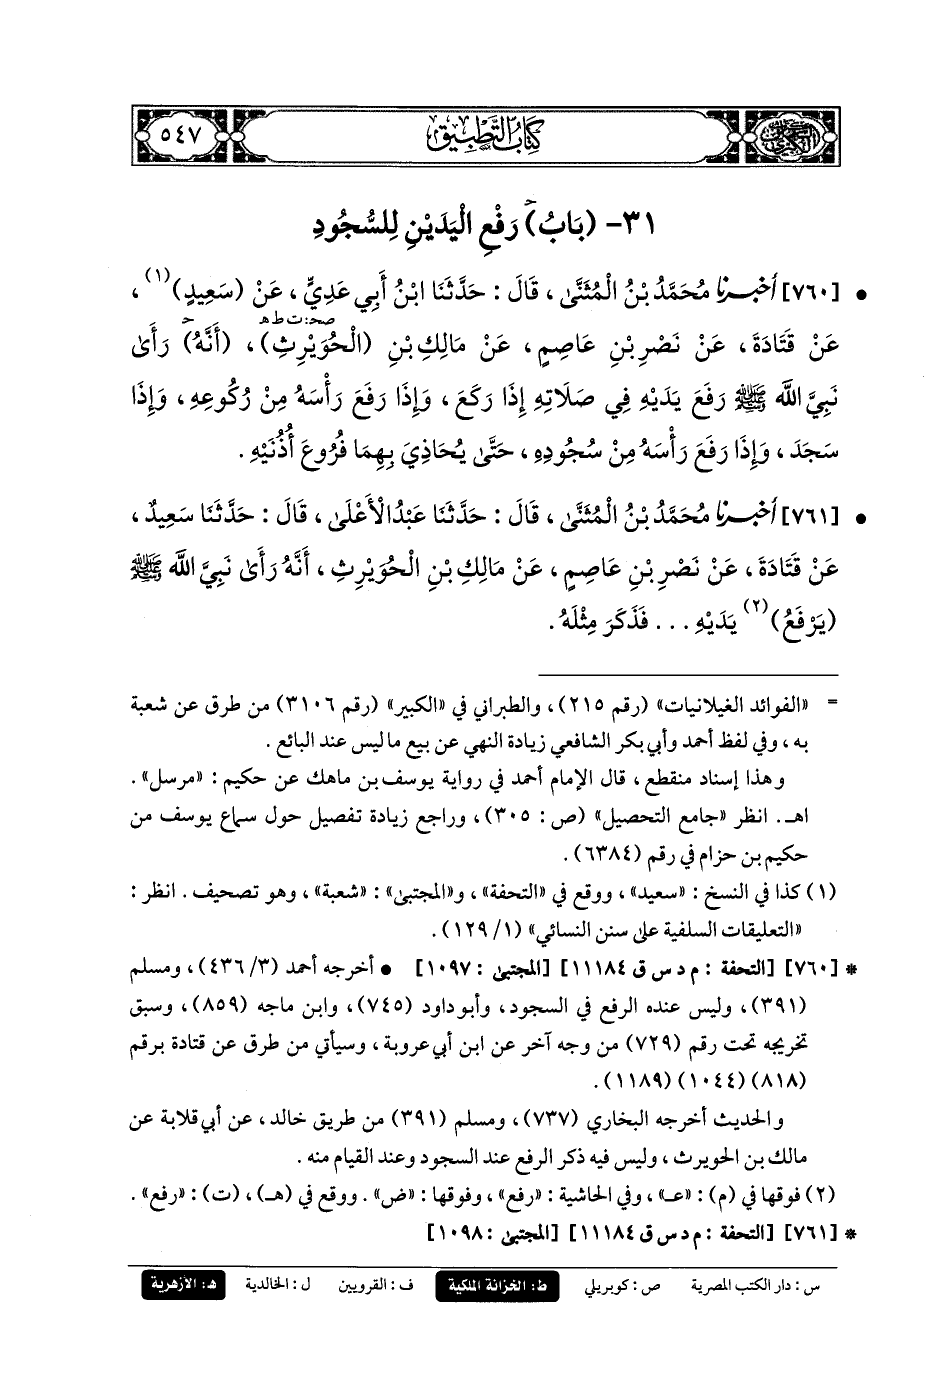 كتاب التطبيق ٥٤٧
٣١- (بَابُ) رَفْعِ الْيَدَيْنِ لِلسُّجُودِ
• [٧٦٠] أخبرنا مُحَمَّدُ بْنُ الْمُثَنَّى، قَالَ: حَدَّثَنَا ابْنُ أَبِي عَدِيٍّ، عَنْ (سَعِيدٍ)(١)،
عَنْ قَتَادَةَ، عَنْ نَصْرِ بْنِ عَاصِمٍ، عَنْ مَالِكِ بْنِ (الْحُوَيْرِثِ)، (أَنَّهُ) رَأَىٰ
نَبِيَّ اللَّه ﷺ رَفَعَ يَدَيْهِ فِي صَلَاتِهِ إِذَا رَكَعَ، وَإِذَا رَفَعَ رَأْسَهُ مِنْ رُكُوعِهِ، وَإِذَا
سَجَدَ، وَإِذَا رَفَعَ رَأْسَهُ مِنْ سُجُودِهِ، حَتَّىٰ يُحَاذِيَ بِهِمَا فُرُوعَ أُذُنَيْهِ.
• [٧٦١] أخبرنا مُحَمَّدُ بْنُ الْمُثَنَّى، قَالَ: حَدَّثَنَا عَبْدُ الْأَعْلَىٰ، قَالَ: حَدَّثَنَا سَعِيدٌ،
عَنْ قَتَادَةَ، عَنْ نَصْرِ بْنِ عَاصِمٍ، عَنْ مَالِكِ بْنِ الْحُوَيْرِثِ، أَنَّهُ رَأَىٰ نَبِيَّ اللَّه ﷺ
(يَرْفَعُ)(٢) يَدَيْهِ... فَذَكَرَ مِثْلَهُ.
= «الفوائد الغيلانيات» (رقم ٢١٥)، والطبراني في «الكبير» (رقم ٣١٠٦) من طرق عن شعبة
به، وفي لفظ أحمد وأبي بكر الشافعي زيادة النهي عن بيع ما ليس عند البائع.
وهذا إسناد منقطع، قال الإمام أحمد في رواية يوسف بن ماهك عن حكيم: «مرسل».
اهـ. انظر «جامع التحصيل» (ص: ٣٠٥)، وراجع زيادة تفصيل حول سماع يوسف من
حكيم بن حزام في رقم (٦٣٨٤).
(١) كذا في النسخ: «سعيد»، ووقع في «التحفة»، و«المجتبى»: «شعبة»، وهو تصحيف. انظر:
«التعليقات السلفية على سنن النسائي» (١/ ١٢٩).
* [٧٦٠] [التحفة: م د س ق ١١١٨٤] [المجتبى: ١٠٩٧] • أخرجه أحمد (٣/ ٤٣٦)، ومسلم
(٣٩١)، وليس عنده الرفع في السجود، وأبو داود (٧٤٥)، وابن ماجه (٨٥٩)، وسبق
تخريجه تحت رقم (٧٢٩) من وجه آخر عن ابن أبي عروبة، وسيأتي من طرق عن قتادة برقم
(٨١٨) (١٠٤٤) (١١٨٩).
والحديث أخرجه البخاري (٧٣٧)، ومسلم (٣٩١) من طريق خالد، عن أبي قلابة عن
مالك بن الحويرث، وليس فيه ذكر الرفع عند السجود وعند القيام منه.
(٢) فوقها في (م): «عـ»، وفي الحاشية: «رفع»، وفوقها: «ض». ووقع في (هـ)، (ت): «رفع».
* [٧٦١] [التحفة: م د س ق ١١١٨٤] [المجتبى: ١٠٩٨]
س: دار الكتب المصرية ص: كوبريلي ط: الخزانة الملكية ف: القرويين ل: الخالدية هـ: الأزهرية